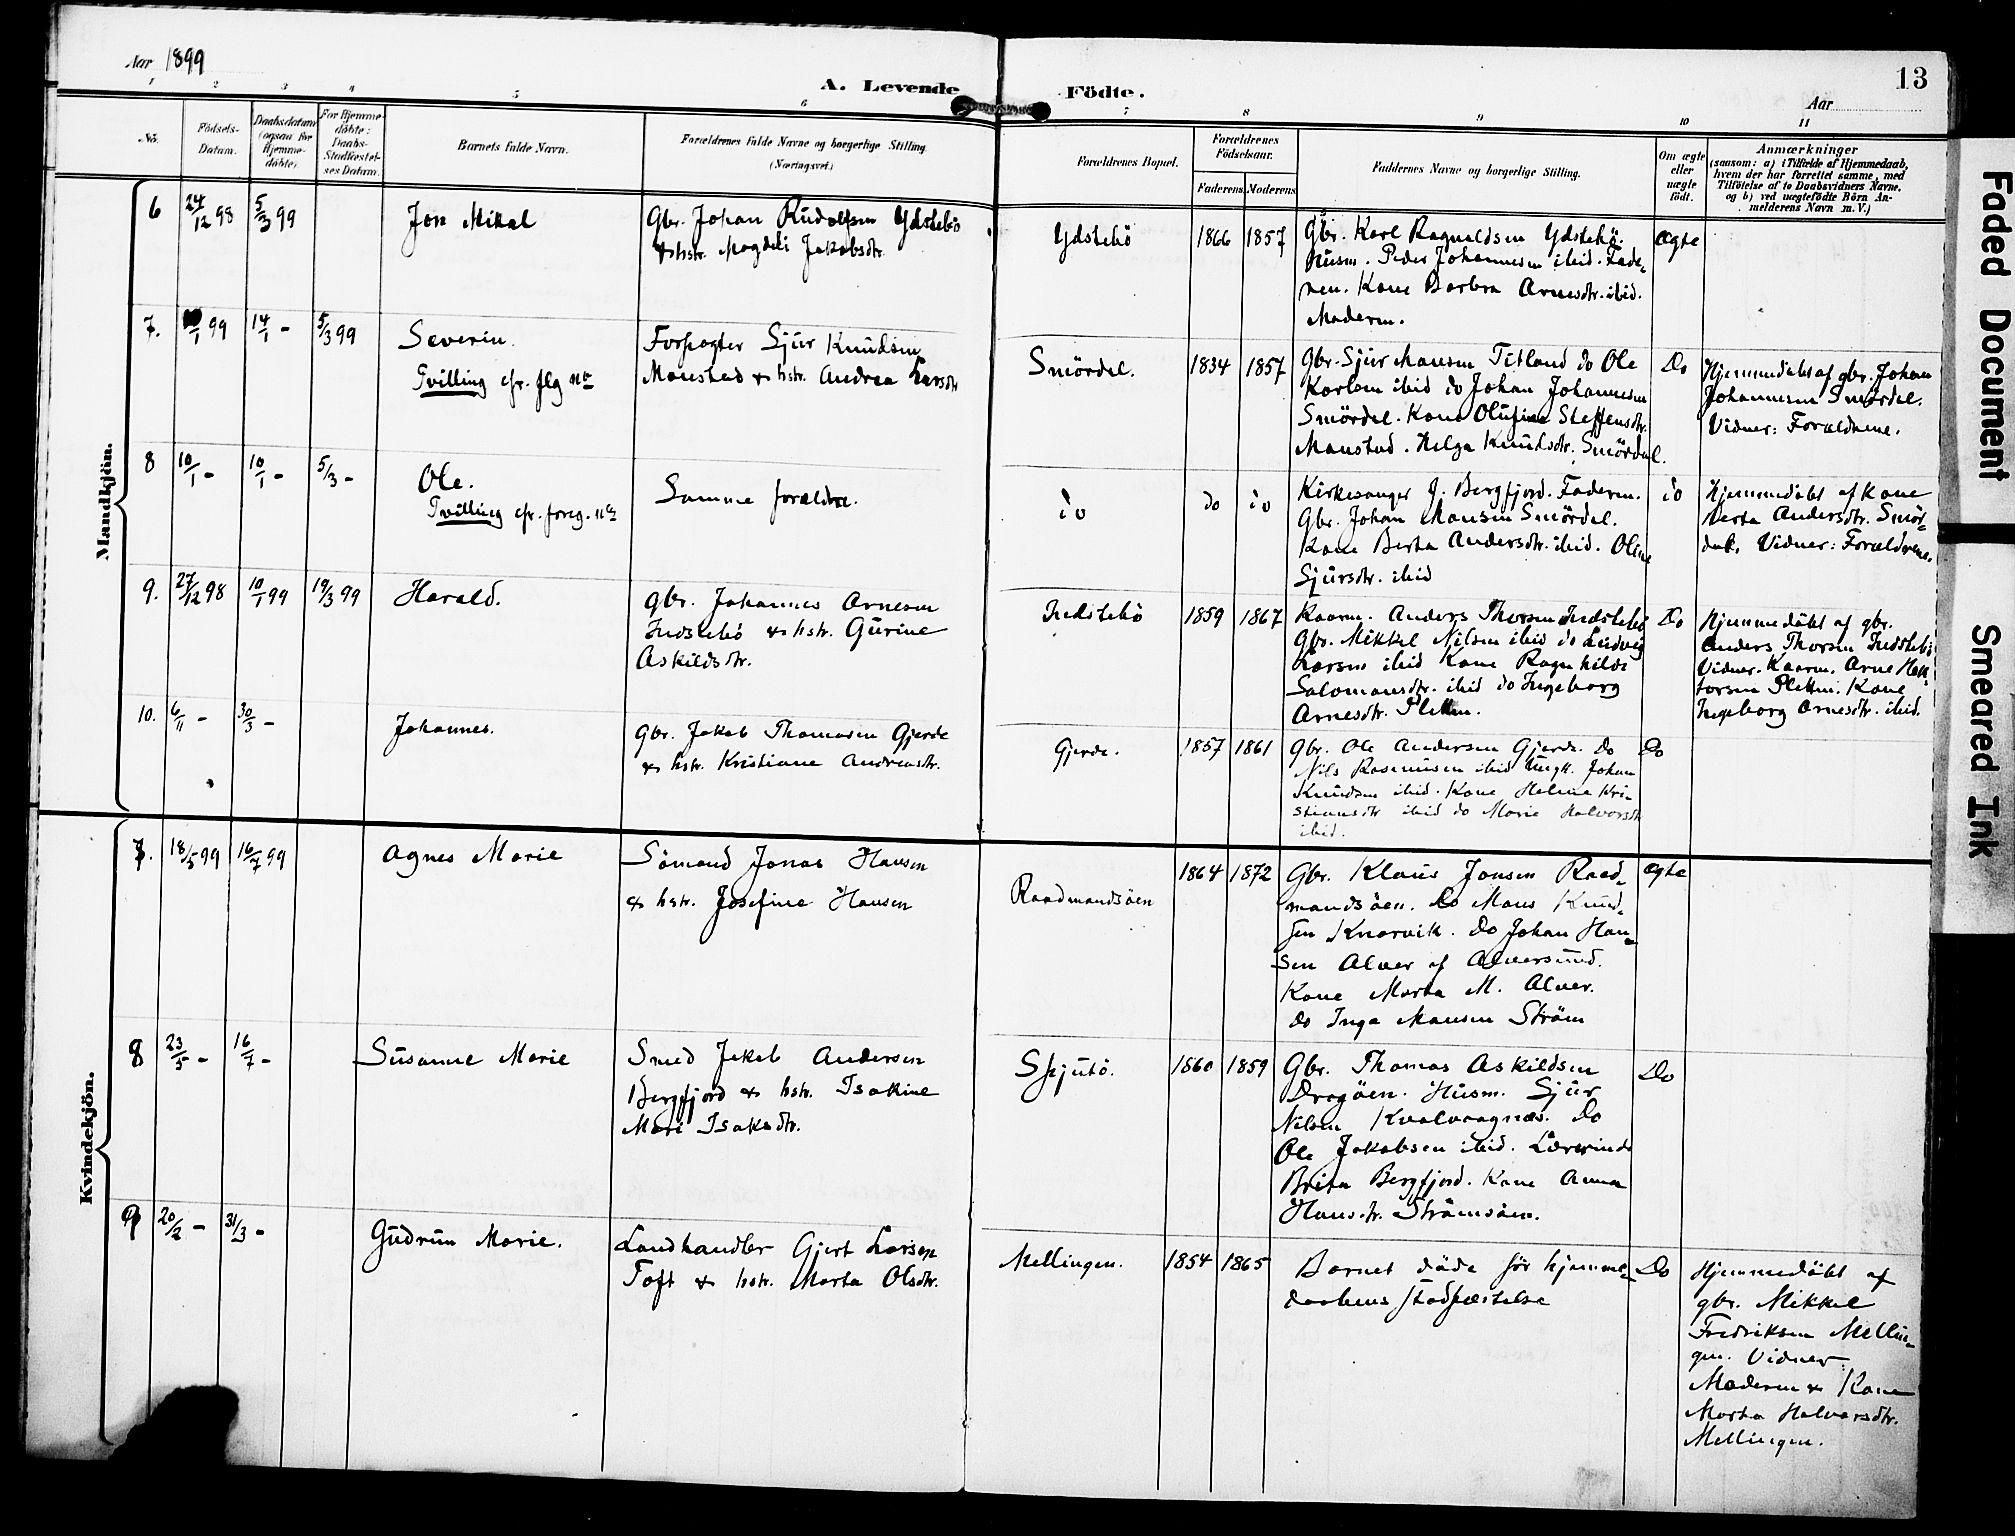 Aar 1899
A. Levende Födte.
13
Aar
1 2 3 4 5 6 7 8 9 10 11
No.
Födsels-
Datum.
Daabsdatum
(ogsaa for
Hjemme-
döbte).
For Hjemme-
döbte:
Daabs-
Stadfæstel-
ses Datum.
Barnets fulde Navn.
Forældrenes fulde Navne og borgerlige Stilling.
(Næringsvei.)
Forældrenes Bopæl.
Forældrenes
Födselsaar.
Faderens. Moderens.
Faddernes Navne og borgerlige Stilling.
Om ægte
eller
uægte
födt.
Anmærkninger
(saasom: a) i Tilfælde af Hjemmedaab,
hvem der har forrettet samme, med
Tilföielse af to Daabsvidners Navne,
og b) ved uægtefödte Börn An-
melderens Navn m. V.)
Mandkjön.
6 24/12 98 5/3 99
Jon Mikal
Gbr. Johan Rudolfsen Ydstebö
& hstr. Magdeli Jakobsdtr.
Ydstebö
1866 1857
Gbr. Karl Ragnaldsen Ydstebö.
Husm. Peder Johannesen ibid. Fade-
ren. Kone Barbra Arnesdtr. ibid.
Moderen.
ægte
7. /1 99 14/1 - 5/3 99
Severin.
Tvilling cfr. flg no
Forpagter Sjur Knudsen
Monstad & hstr. Andrea Larsdtr
Smördal.
1834 1857
Gbr. Sjur Monsen Titland do Ole
Karlsen ibid do Johan Johannesen
Smördal. Kone Olufine Steffensdtr.
Monstad. Helga Knudsdtr. Smördal.
Do
Hjemmedöbt af gbr. Johan
Johannesen Smördal.
Vidner: Forældrene.
8 10/1 - 10/1 - 5/3 -
Ole.
Tvilling cfr. foreg. no
Samme forældre.
do
do do
Kirkesanger J. Bergfjord. Faderen.
Gbr. Johan Monsen Smördal.
Kone Berta Andersdtr. ibid. Oline
Sjursdtr. ibid
do
Hjemmedöbt af Kone
Berta Andersdtr. Smör-
dal. Vidner: Forældrene.
9. 27/12 98 10/1 99 19/3 99
Harald.
Gbr. Johannes Arnesen
Indstebö & hstr. Gurine
Askildsdtr.
Indstebö
1859 1867
Kaarm. Anders Thorsen Indstebö
Gbr. Mikkel Nilsen ibid do Ludvig
Larsen ibid Kone Ragnhilde
Salomonsdtr. ibid do Ingeborg
Arnesdtr. Pletten.
Do
Hjemmedöbt af gbr.
Anders Thorsen Indstebö
Vidner. Kaarm. Arne Hek-
torsen Pletten. Kone
Ingeborg Arnesdtr. ibid.
10. 6/11 - 30/3 -
Johannes.
Gbr. Jakob Thomasen Gjerde
& hstr. Kristiane Andreasdtr.
Gjerde.
1857 1861
Gbr. Ole Andersen Gjerde. Do
Nils Rasmussen ibid Ungk. Johan
Knudsen ibid. Kone Helene Kri-
stiansdtr ibid do Marie Halvorsdtr
ibid.
Do
Kvindekjön.
7. 18/5 99 16/7 99
Agnes Marie
Sömand Jonas Hansen
& hstr. Josefine Hansen
Raadmandsöen
1864 1872
Gbr. Klaus Jonsen Raad-
mandsöen. Do Mons Knud-
sen Knarvik. Do Johan Han-
sen Alver af Alversund.
Kone Marta M. Alver.
do Inga Monsen Ström
ægte
8 23/5 - 16/7 -
Susanne Marie
Smed Jakob Andersen
Bergfjord & hstr. Isakine
Mari Isaksdtr.
Skjutö.
1860 1859
Gbr. Thomas Askildsen
Dragöen. Husm. Sjur
Nilsen Kvalvaagnæs. Do
Ole Jakobsen ibid. Lærerinde
Brita Bergfjord. Kone Anna
Hansdtr. Strömsöen.
Do
9 20/2 - 31/3 -
Gudrun Marie.
Landhandler Gjert Larsen
Toft & hstr. Marta Olsdtr.
Mellingen.
1854 1865
Barnet döde för hjemme-
daabens stadfæstelse
Do
Hjemmedöbt af
gbr. Mikkel
Fredriksen Mellin-
gen. Vidner:
Moderen & Kone
Marta Halvorsdtr.
Mellingen.
Faded Document
Smeared Ink